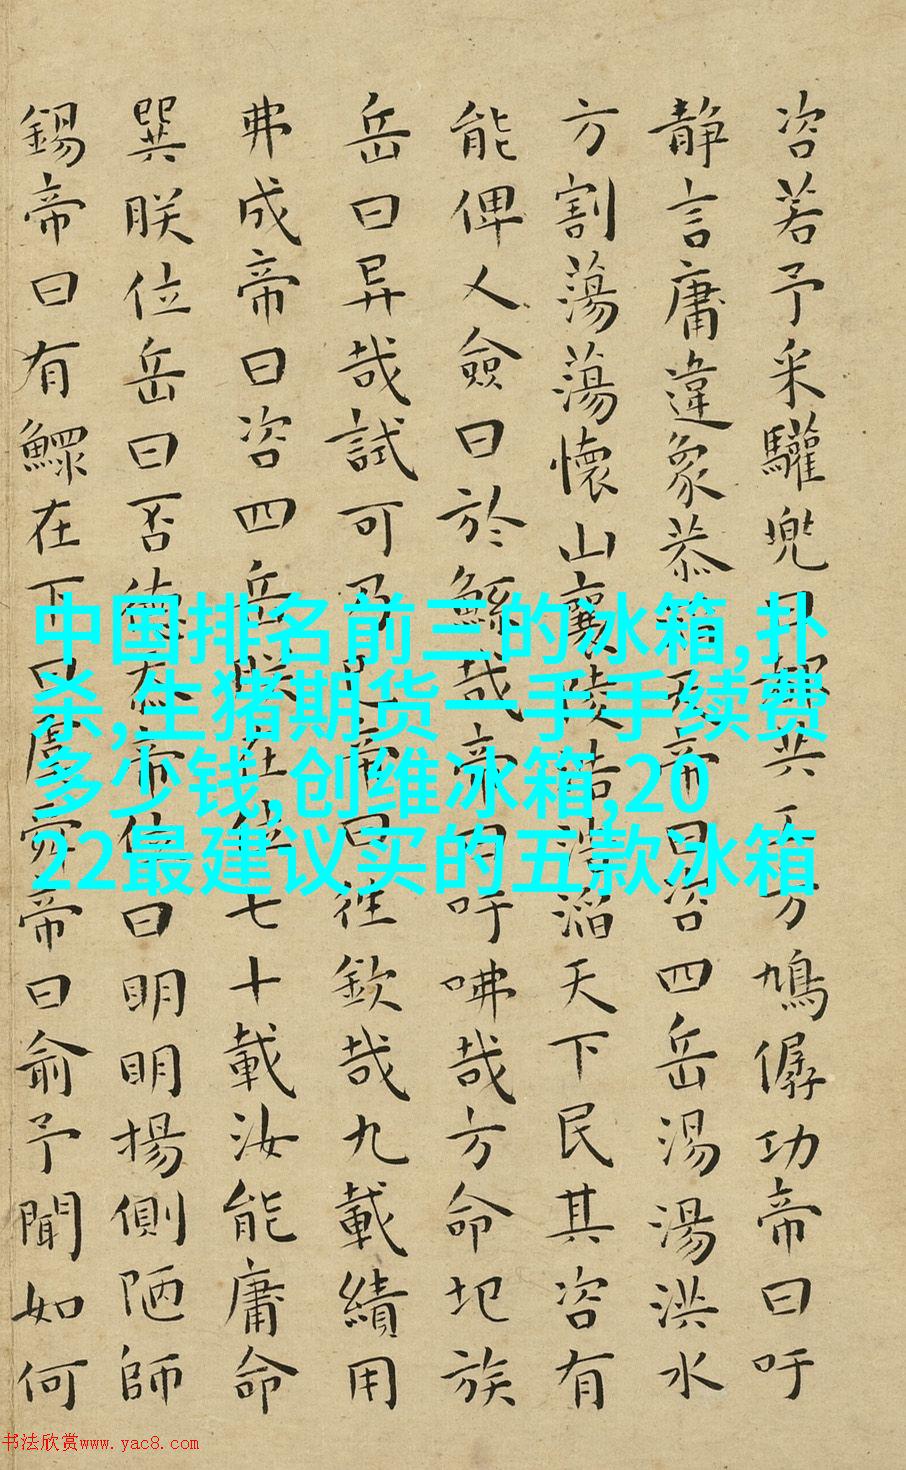 咨若予采驩兜曰都共工方鳩僝功帝曰吁
静言庸違象恭滔天帝曰咨四岳湯湯洪水
方割蕩蕩懷山襄陵浩浩滔天下民其咨有
能俾人僉曰於鯀哉帝曰吁咈哉方命圮族
岳曰异哉試可乃已帝曰往欽哉九載績用
弗成帝曰咨四岳朕在位七十載汝能庸命
巽朕位岳曰否德忝帝位曰明明揚側陋師
錫帝曰有鰥在下曰虞舜帝曰俞予聞如何
中国排名前三的冰箱,扑
杀,生猪期货一手手续费
多少钱,创维冰箱,20
22最建议买的五款冰箱
书法欣赏www.yac8.com